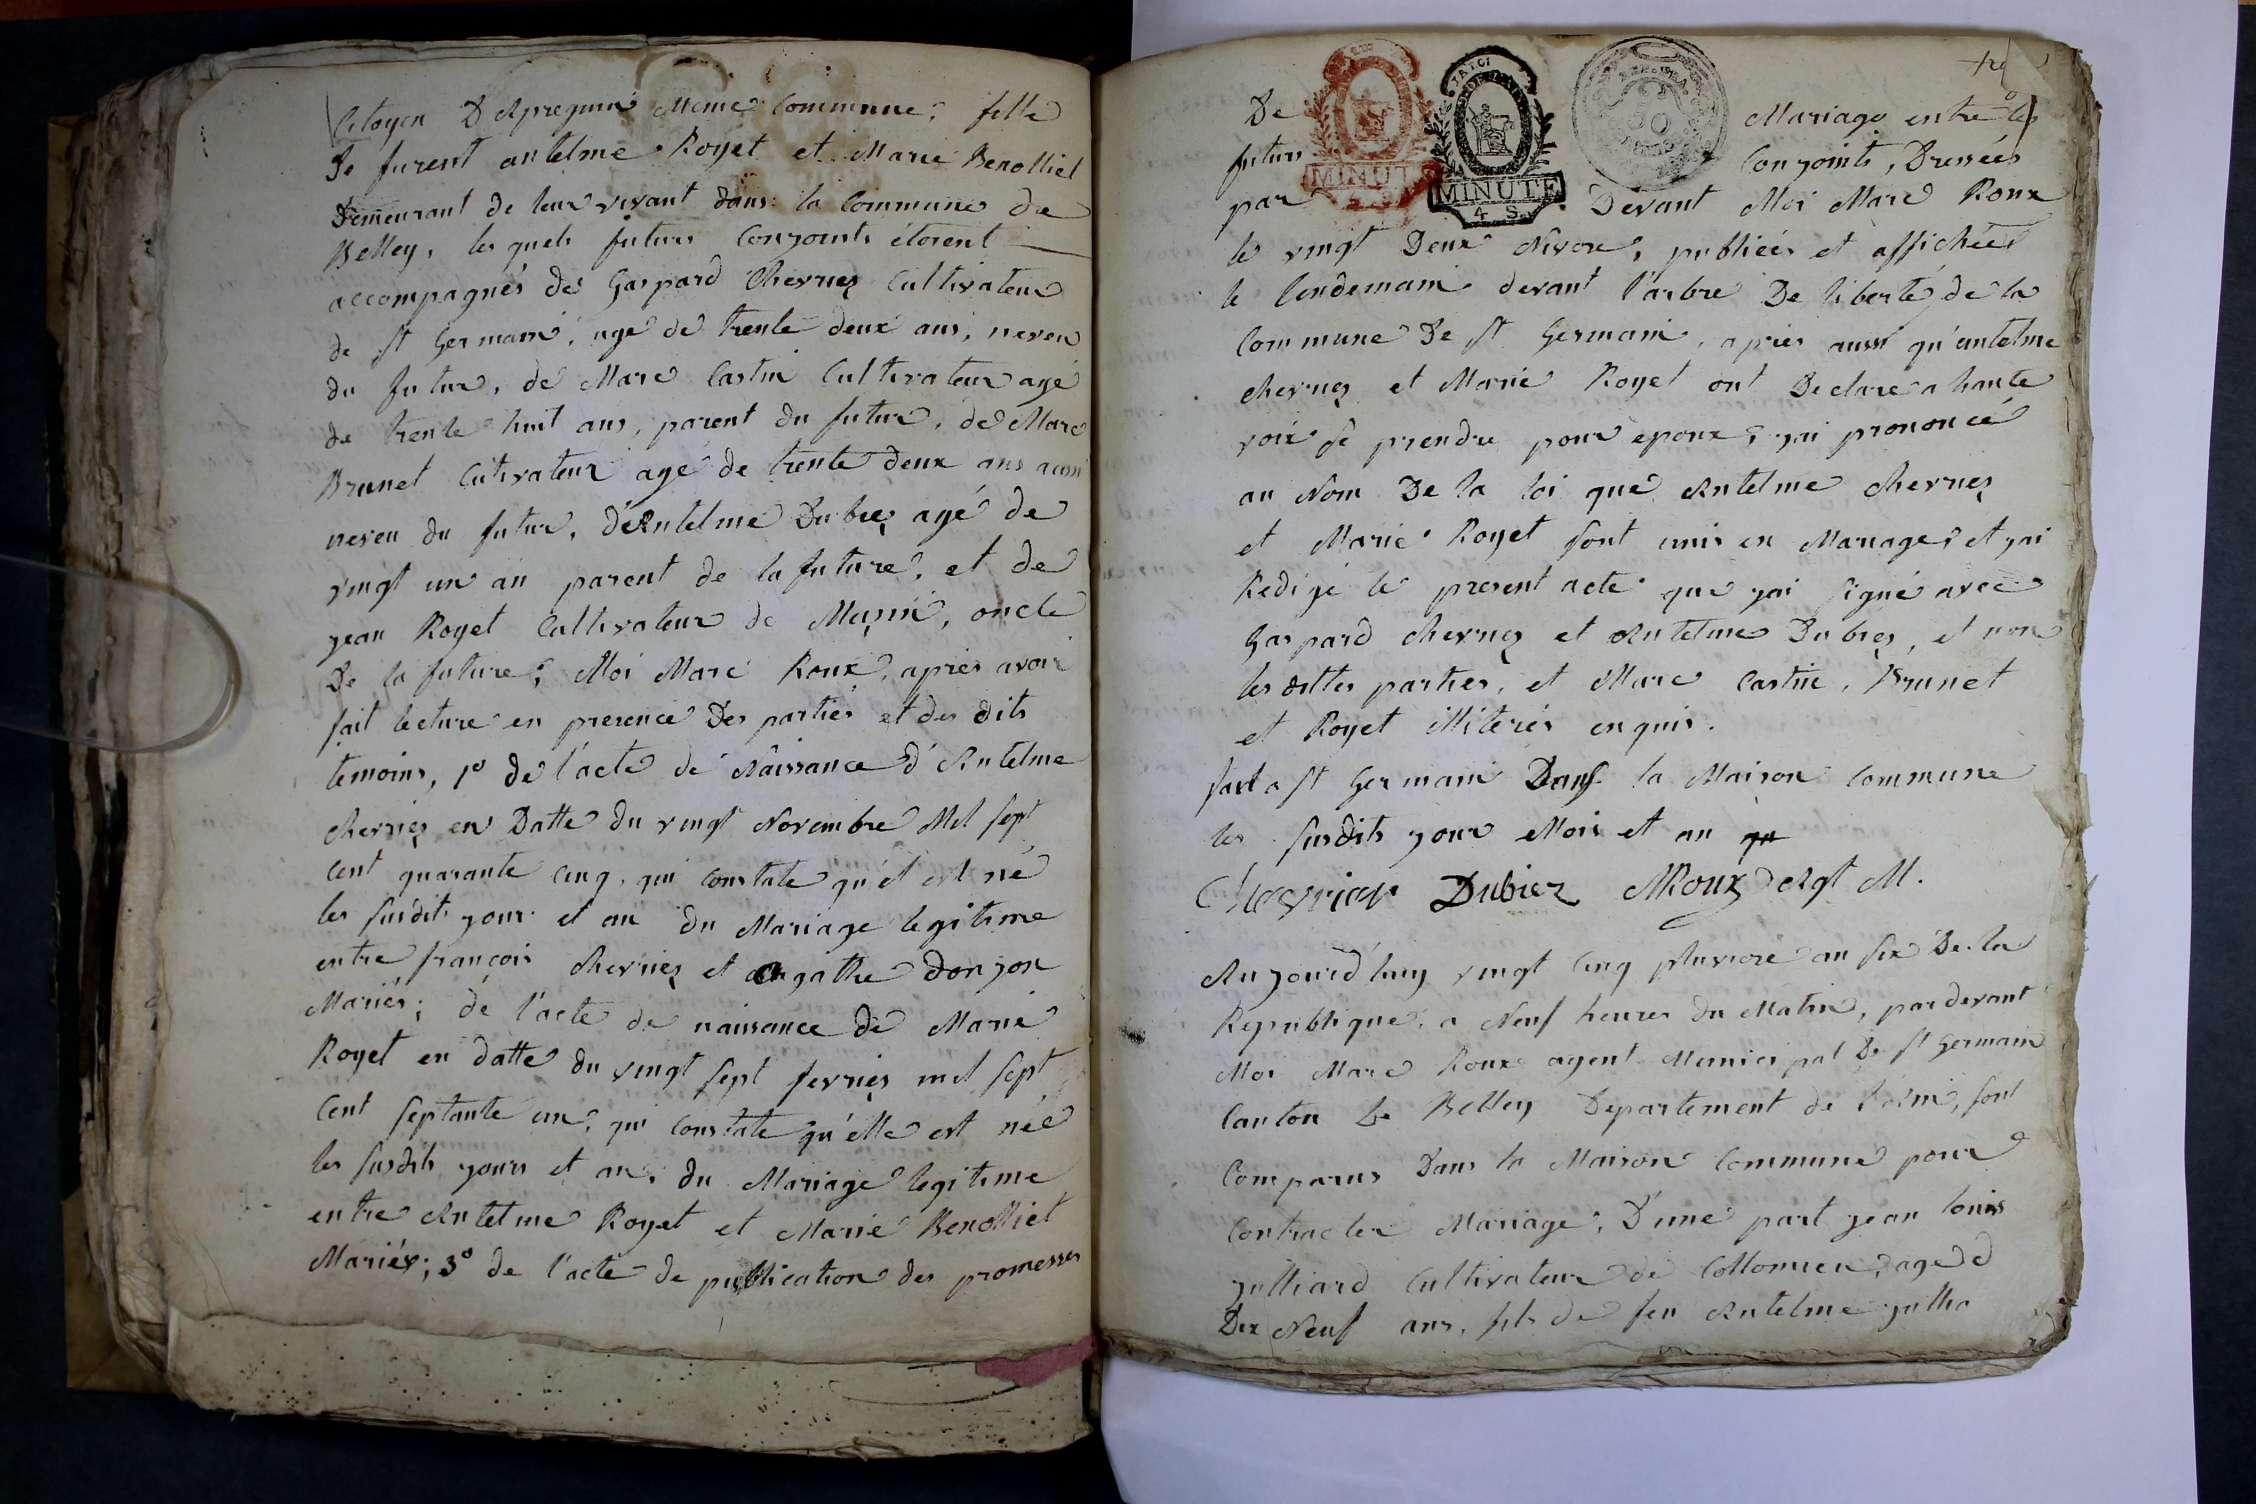 Citoyen D'Apregnin Meme Commune, fille
De furent antelme Royet et Marie Benolliet
Demeurant de leur vivant dans la Commune de
Belley, les quels futurs Conjoints étoient
accompagnés de Gaspard Chevrier Cultivateur
de st Germain, agé de trente deux ans, neveu
du futur, de Marc Castin Cultivateur agé
de trente huit ans, parent du futur, de Marc
Brunet Cutivateur agé de trente deux ans aussi
neveu du futur, d'Antelme Dubiez agé de
vingt un an parent de la future, et de
jean Royet Cultivateur de Musin, oncle
De la future; Moi Marc Roux, apries avoir
fait lecture en presence Des parties et des dits
temoins, 1º de l'acte de Naissance d'Antelme
chevriez en Datte du vingt Novembre Mil sept
Cent quarante cinq, qui Constate qu'il est né
les susdits jour et an du Mariage legitime
entre françois chevriez et Agathe Donjon
Mariés; de l'acte de naissance de Marie
Royet en datte du vingt sept fevriez mil sept
Cent septante un, qui Constate qu'elle est née
les susdits jours et an, du Mariage legitime
entre Antelme Royet et Marie Benolliet
Mariés; 3º de l'acte de publication des promesses
De Mariage entre les
futurs Conjoints, Dressées
par Devant Moi Marc Roux
MINUTE
MINUTE
4 S.
le vingt Deux Nivose, publiées et affichées
le lendemain devant l'arbre De liberté de la
Commune De st Germain, apries aussi qu'antelme
chevriez et Marie Royet ont Declaré a haute
voix se prendre pour epoux, jai prononcé
au Nom De la loi que Antelme chevriez
et Marie Royet sont unis en Mariage, et jai
Redigé le present acte que jai signé avec
Gaspard chevriez et Antelme Dubiez, et non
les dittes parties, et Marc Castin, Brunet
et Royet illiterés enquis.
fait a st Germain Dans la Maison Commune
les susdits jour Mois et an
Chevrier Dubiez MRoux Agt M.
Aujourd'huy vingt Cinq pluviose an six De la
Republique, a Neuf heures du Matin, pardevant
Moi Marc Roux agent Municipal De st Germain
Canton De Belley Departement de l'Ain, sont
Comparus Dans la Maison Commune pour
Contracter Mariage, D'une part jean louis
julliard Cultivateur de Collomieu, agé d
Dix Neuf ans, fils de feu Antelme jullia